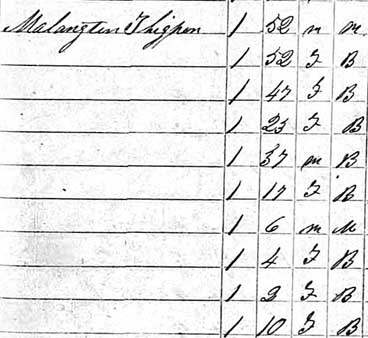 Malangten Thigpen 1 52 m m
1 52 F B
1 47 F B
1 23 F B
1 37 m B
1 17 F B
1 6 m M
1 4 F B
1 2 F B
1 10 F B